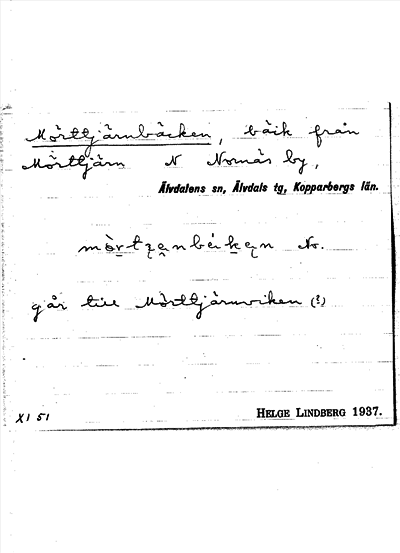 Mörttjärnbäcken, bäck från
Mörttjärn N Nornäs by,
Älvdalens sn, Älvdals tg, Kopparbergs län.
No.
går till Mörttjärnviken (?)
XI 51
HELGE LINDBERG 1937.